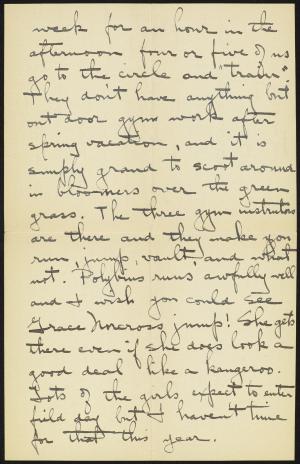 week for an hour in the
afternoon four or five of us
go to the circle and "train".
They don't have anything but
out door gym work after
spring vacation, and it is
simply grand to scoot around
in bloomers over the green
grass. The three gym instructors
are there and they make you
run, jump, vault, and what
not. Polybius runs awfully well
and I wish you could see
Grace Norcross jump! She gets
there even if she does look a
good deal like a kangeroo.
Lots of the girls expect to enter
field day but I haven't time
for that this year.